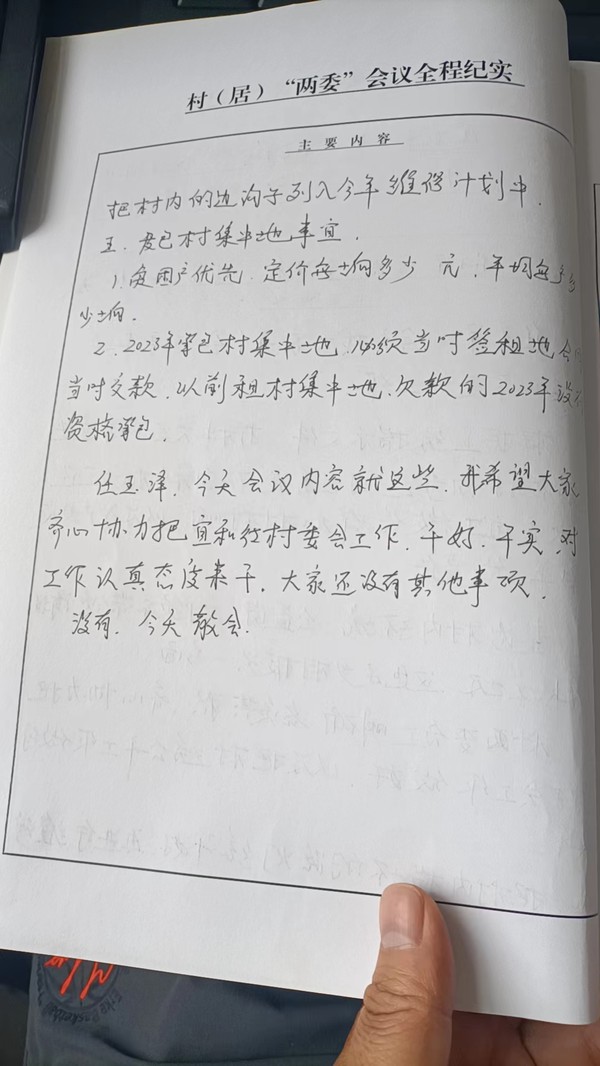 村（居）“两委”会议全程纪实
主要内容
把村内的边沟子列入今年维修计划中.
五.发包村集中地事宜.
1.贫困户优先.定价每垧多少 元.平均每多
少垧.
2.2023年承包村集中土地.必须当时签租地合
当时交款.以前租村集中土地.欠款的2023年没
资格承包.
任玉泽.今天会议内容就这些.我希望大家
齐心协力把宜和村委会工作.干好.干实.对
工作认真态度来干.大家还没有其他事项.
没有.今天散会.